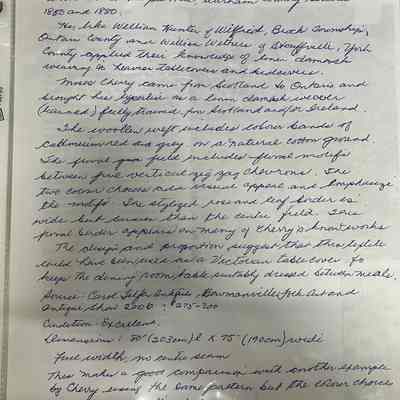 1850 and 1880
He, like William Hunter of Wilfred, Brock Township,
Ontario County and William Withers of Stouffville, York
County applied their knowledge of linen damask
weaving to heavier tablecovers and bedcovers.
Moses Cherry came from Scotland to Ontario and
brought his expertise as a linen damask weaver
(learned) fully trained in Scotland and/or Ireland.
The woollen weft includes colour bands of
red and grey on a natural cotton ground.
The floral field includes floral motifs
between five vertical zig zag chevrons. The
two colour choices add visual appeal and emphasize
the motifs. The stylized rose and leaf border is
wide but than the centre field. This
floral border appears on many of Cherry's known works
The design and proportion suggest that this textile
could have been used as a Victorian tablecover to
keep the dining room table suitably dressed between meals.
Source: Carol Telfer Antiques, Bowmanville Folk Art and
Antique Show 2006: 275-200
Condition: Excellent.
Dimensions: 80" (203cm) l X 75" (190cm) wide
Full width, no centre seam
This makes a good comparison with another example
by Cherry using the same pattern but the colour choice